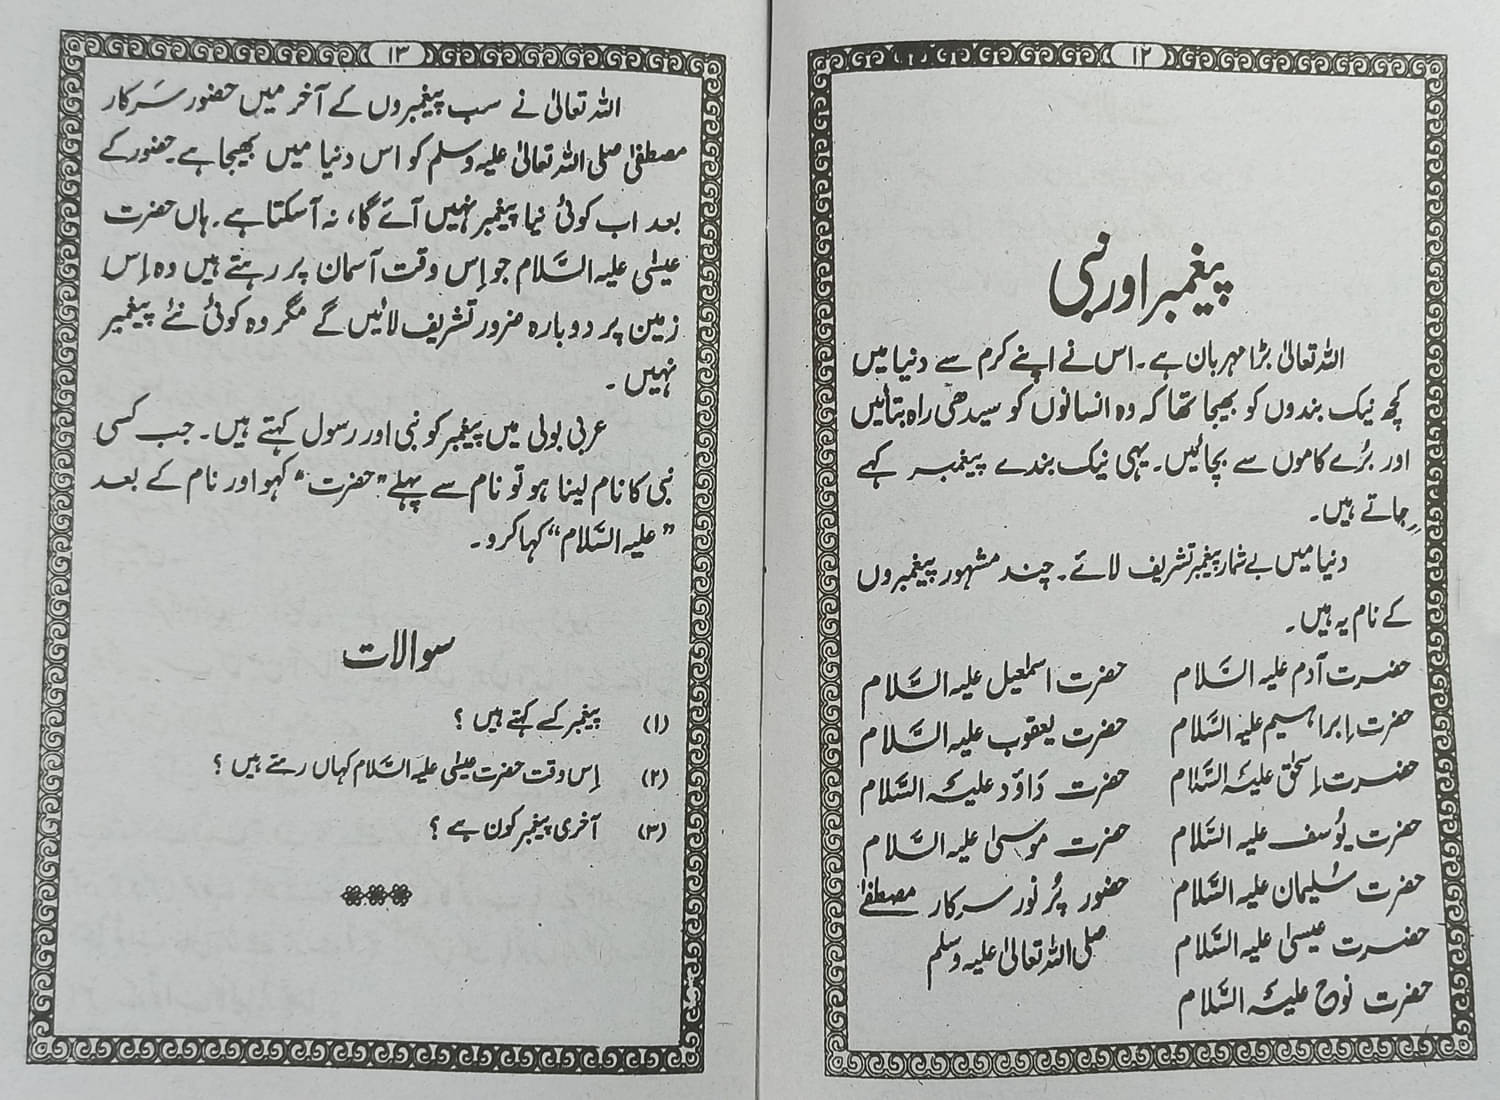 ۱۲
پیغمبر اور نبی
اللہ تعالیٰ بڑا مہربان ہے۔ اس نے اپنے کرم سے دنیا میں
کچھ نیک بندوں کو بھیجا تھا کہ وہ انسانوں کو سیدھی راہ بتائیں
اور بُرے کاموں سے بچائیں۔ یہی نیک بندے پیغمبر کہے
جاتے ہیں۔
دنیا میں بے شمار پیغمبر تشریف لائے۔ چند مشہور پیغمبروں
کے نام یہ ہیں۔
حضرت آدم علیہ السَّلام حضرت اسمٰعیل علیہ السَّلام
حضرت اِبراہیم علیہ السَّلام حضرت یعقوب علیہ السَّلام
حضرت اِسحٰق علیہ السَّلام حضرت دَاوٗد علیہ السَّلام
حضرت یوُسف علیہ السَّلام حضرت موسیٰ علیہ السَّلام
حضرت سُلیمان علیہ السَّلام حضور پُر نور سرکار مصطفےٰ
حضرت عیسیٰ علیہ السَّلام صلی اللہ تعالیٰ علیہ وسلم
حضرت نوح علیہ السَّلام
۱۳
اللہ تعالیٰ نے سب پیغمبروں کے آخر میں حضور سَرکار
مصطفےٰ صلی اللہ تعالیٰ علیہ وسلم کو اس دنیا میں بھیجا ہے۔ حضور کے
بعد اب کوئی نیا پیغمبر نہیں آئے گا، نہ آسکتا ہے۔ ہاں حضرت
عیسیٰ علیہ السَّلام جو اِس وقت آسمان پر رہتے ہیں وہ اِس
زمین پر دوبارہ ضرور تشریف لائیں گے مگر وہ کوئی نئے پیغمبر
نہیں۔
عربی بولی میں پیغمبر کو نبی اور رسول کہتے ہیں۔ جب کسی
نبی کا نام لینا ہو تو نام سے پہلے ”حضرت“ کہو اور نام کے بعد
”علیہ السَّلام“ کہا کرو۔
سوالات
(۱) پیغمبر کسے کہتے ہیں؟
(۲) اِس وقت حضرت عیسٰی علیہ السَّلام کہاں رہتے ہیں؟
(۳) آخری پیغمبر کون ہے؟